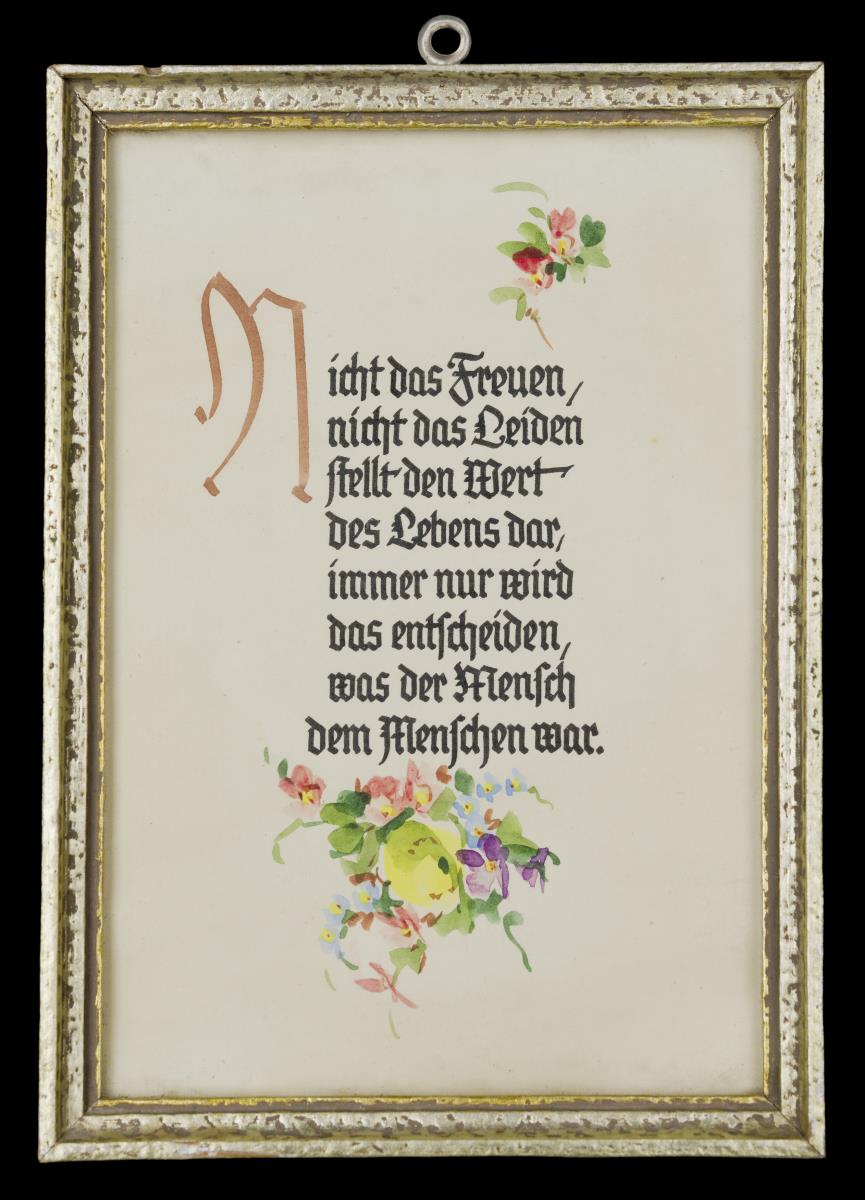 Nicht das Freuen,
nicht das Leiden
stellt den Wert
des Lebens dar,
immer nur wird
das entscheiden,
was der Mensch
dem Menschen war.